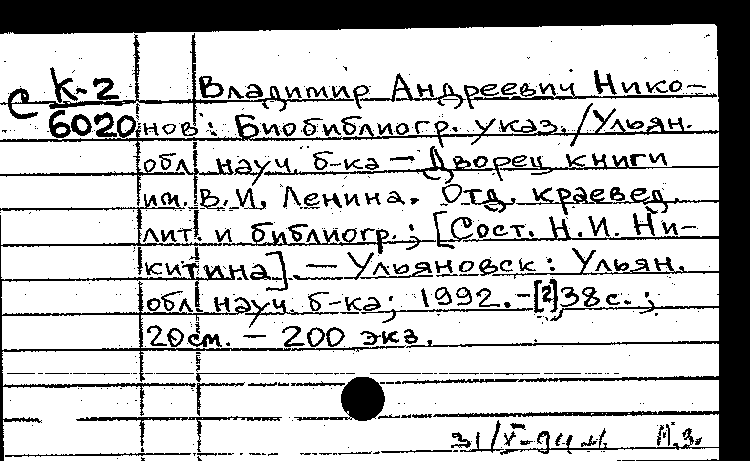 С К-2 Владимир Андреевич Нико-
6020 нов: Биобиблиогр. указ. / Ульян.
обл. науч. б-ка — Дворец книги
им. В. И. Ленина. Отд. краевед.
лит. и библиогр.; [Сост. Н. И. Ни-
китина]. — Ульяновск: Ульян.
обл. науч. б-ка; 1992. - [2] 38 с.;
20 см. — 200 экз.
31/V-94 М.З.